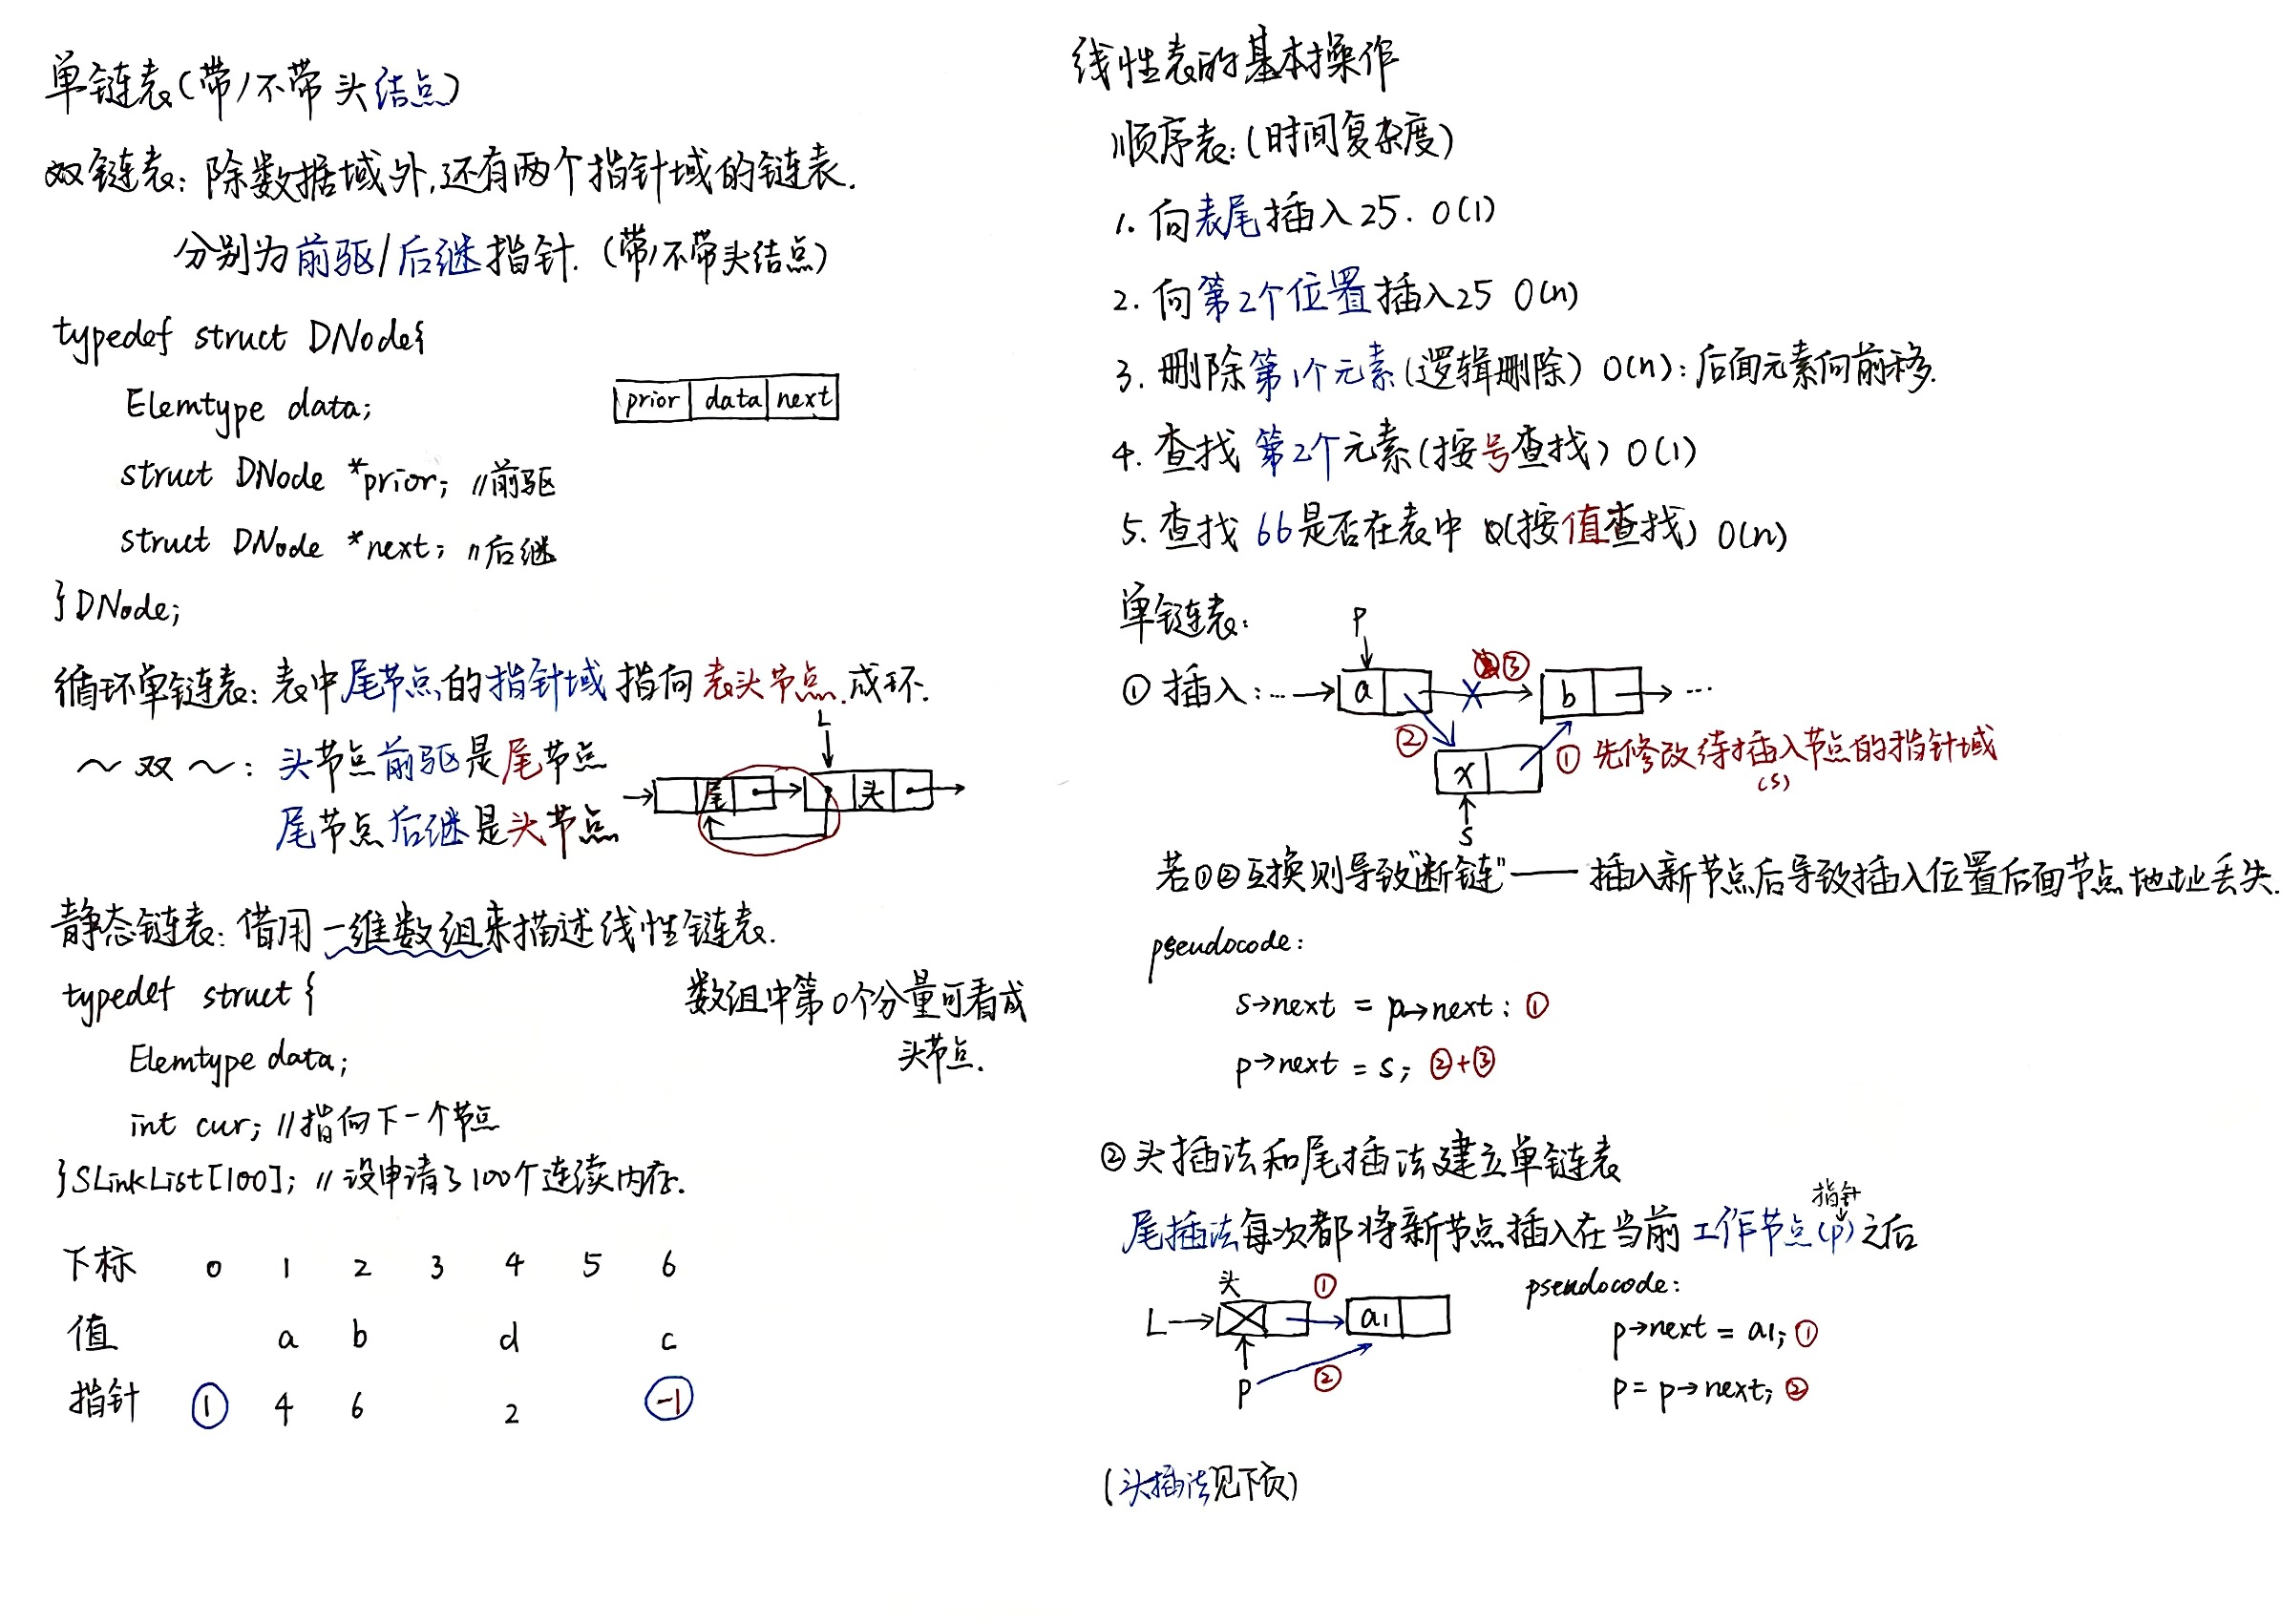 单链表(带/不带头结点)
双链表：除数据域外,还有两个指针域的链表.
分别为前驱/后继指针.(带/不带头结点)
typedef struct DNode{
Elemtype data;
prior data next
struct DNode *prior; //前驱
struct DNode *next; //后继
}DNode;
循环单链表：表中尾节点的指针域指向表头节点.成环.
L
～双～：头节点前驱是尾节点
尾 头
尾节点后继是头节点
静态链表：借用一维数组来描述线性链表.
typedef struct{
数组中第0个分量可看成
头节点.
Elemtype data;
int cur; //指向下一个节点
}SLinkList[100]; //设申请了100个连续内存.
下标 0 1 2 3 4 5 6
值 a b d c
指针 ① 4 6 2 -1
线性表的基本操作
顺序表：(时间复杂度)
1. 向表尾插入25. O(1)
2. 向第2个位置插入25 O(n)
3. 删除第1个元素(逻辑删除) O(n)：后面元素向前移.
4. 查找第2个元素(按号查找) O(1)
5. 查找66是否在表中(按值查找) O(n)
单链表：
p
③
①插入：… a b …
② x ①先修改待插入节点的指针域
(s)
s
若①②互换则导致"断链"——插入新节点后导致插入位置后面节点地址丢失.
pseudocode:
s→next = p→next; ①
p→next = s; ②+③
②头插法和尾插法建立单链表
指针
尾插法每次都将新节点插入在当前工作节点(p)之后
头 ①
L a1
p ②
pseudocode:
p→next = a1; ①
p = p→next; ②
(头插法见下页)